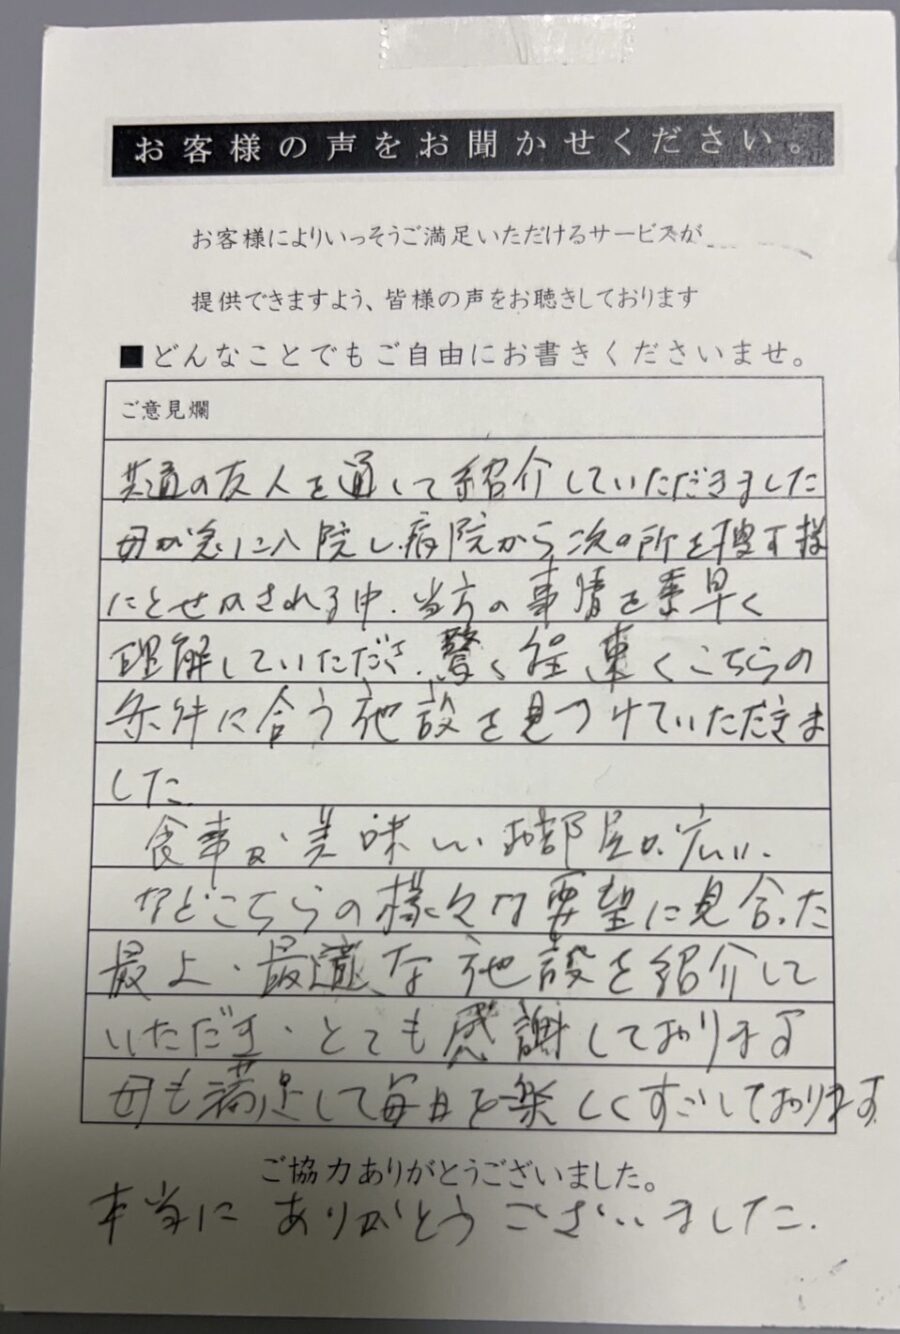 お客様の声をお聞かせください。
お客様によりいっそうご満足いただけるサービスが
提供できますよう、皆様の声をお聴きしております
■どんなことでもご自由にお書きくださいませ。
ご意見爛
共通の友人を通して紹介していただきました
母が急に入院し、病院から次の所を捜す様
にとせかされる中、当方の事情を素早く
理解していただき、驚く程、速くこちらの
条件に合う施設を見つけていただきま
した。
食事が美味しい、お部屋が広い、
などこちらの様々な要望に見合った
最上・最適な施設を紹介して
いただき、とても感謝しております
母も満足して毎日を楽しくすごしております
ご協力ありがとうございました。
本当に ありがとうございました。